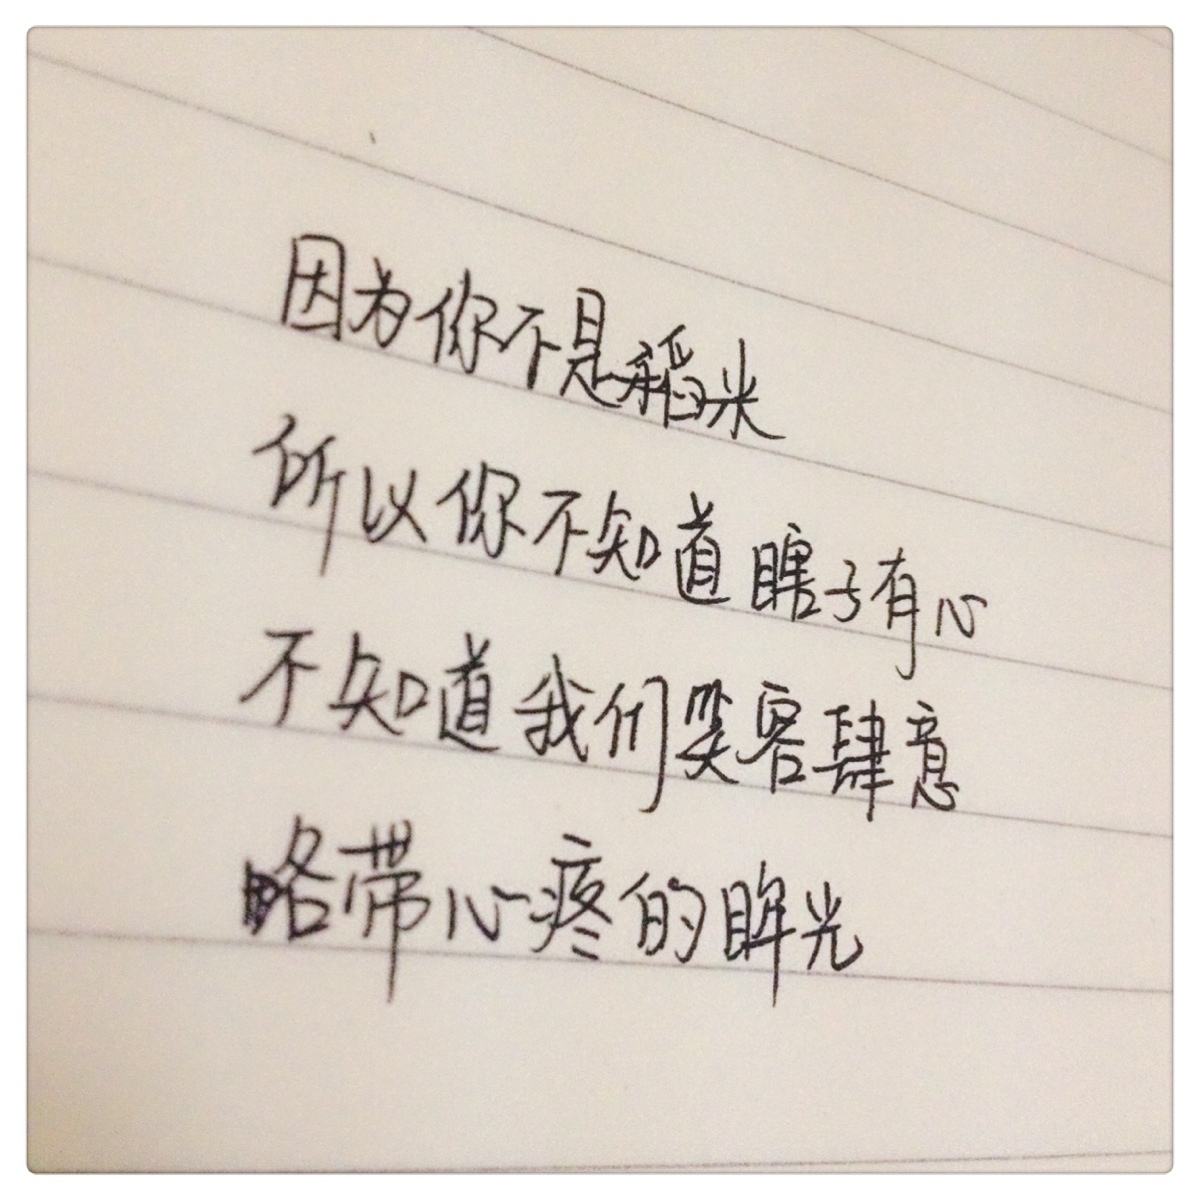 因为你不是稻米
所以你不知道瞎子有心
不知道我们笑容肆意
略带心疼的眸光